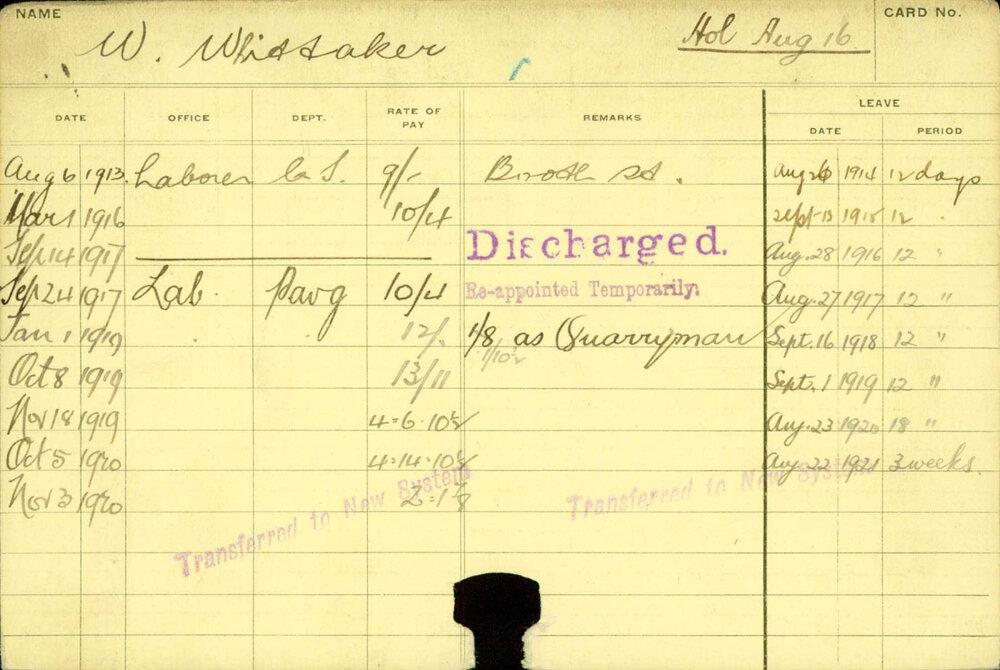 NAME W. Whittaker Hol Aug 16 CARD No.
LEAVE
DATE OFFICE DEPT. RATE OF PAY REMARKS DATE PERIOD
Aug 6 1913 Laborer 9/- Booth St. Aug 26 1914 12 days
Mar 1 1916 10/4 Sept 13 1915 12 "
Sep 14 1917 Discharged. Aug. 28 1916 12 "
Sep 24 1917 Lab. Pavg 10/4 Re-appointed Temporarily. Aug. 27 1917 12 "
Jan 1 1919 12/- 1/8 as Quarryman Sept. 16 1918 12 "
Oct 8 1919 13/11 Sept. 1 1919 12 "
Nov 18 1919 4-6-10½ Aug. 23 1920 18 "
Oct 5 1920 4-14-10½ Aug 22 1921 3 weeks.
Nov 3 1920
Transferred to New System
Transferred to New System